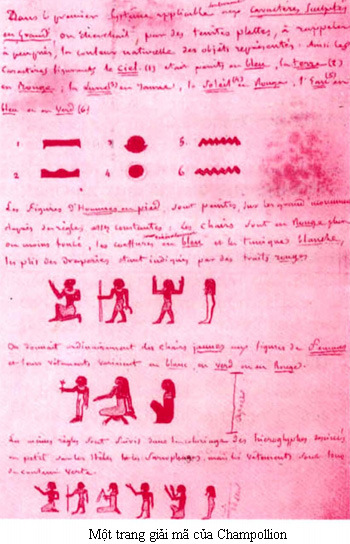 Dans le premier système applicable aux Caractères Sculptés
en Grand on cherchait, par des teintes plattes, à rappeler
à peu près, la couleur naturelle des objets représentés: Ainsi les
Caractères figurant le Ciel (1) étoit peints en bleu, la terre (2)
en Rouge; la Lune (3) en Jaune, le Soleil (4) en Rouge, l'Eau (5)
bleu ou en Verd (6)
1. 3 5.
2. 4 6.
Les Figures d'Hommes en pied, sont peintes sur les grands
d'après des règles assez constantes: les chairs sont en Rouge plus
ou moins foncé, les coeffures en bleu et la tunique blanche,
les plis des draperies étant indiqués par des traits rouges
On donnait ordinairement des chairs jaunes aux figures de Femmes
et leurs vêtements variaient en blanc, en verd ou en Rouge.
Les mêmes règles sont suivies dans le coloriage des hiéroglyphes
en petit sur les Stèles et les Sarcophages; mais les vêtements sont tous
de couleur verte.
Một trang giải mã của Champollion